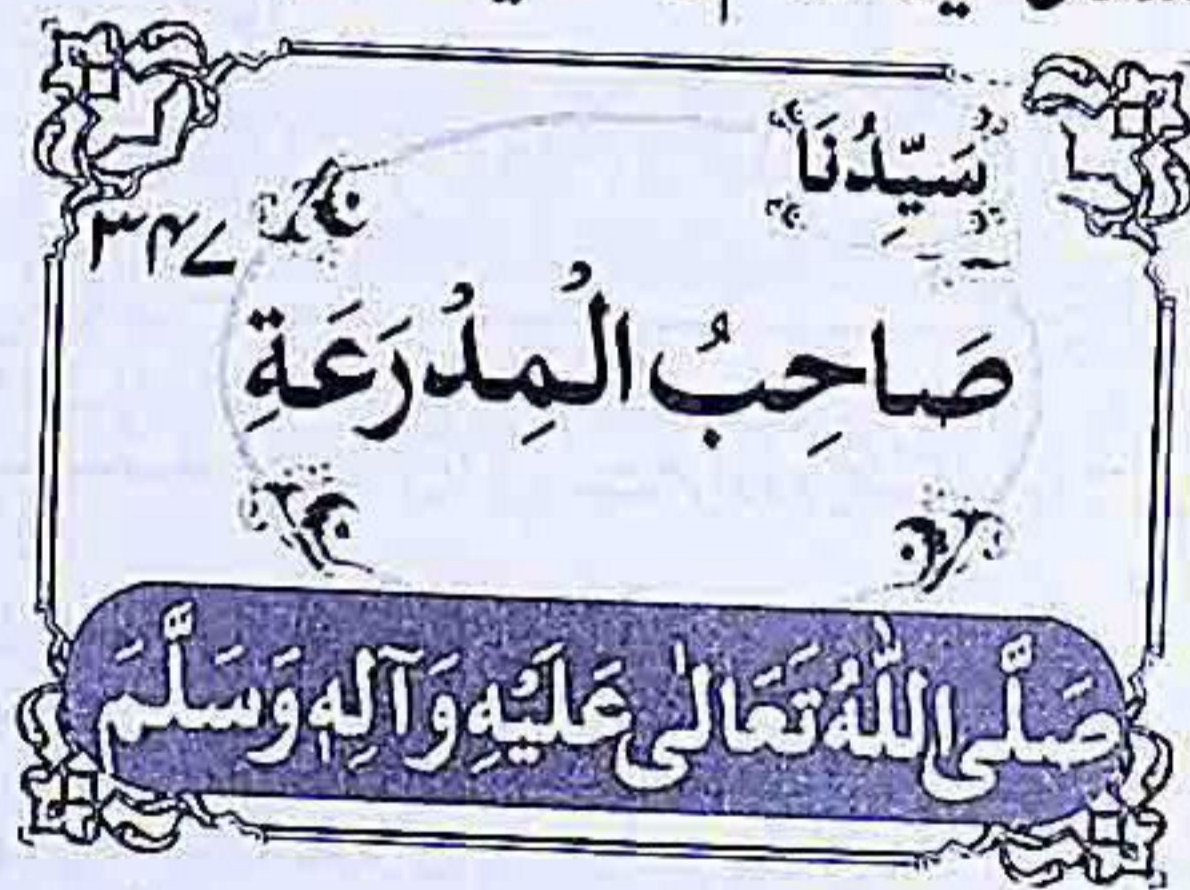 سَيِّدُنَا
۳۴۷
صَاحِبُ الْمِدْرَعَةِ
صَلَّی اللّٰهُ تَعَالٰی عَلَیْهِ وَآلِهٖ وَسَلَّمَ